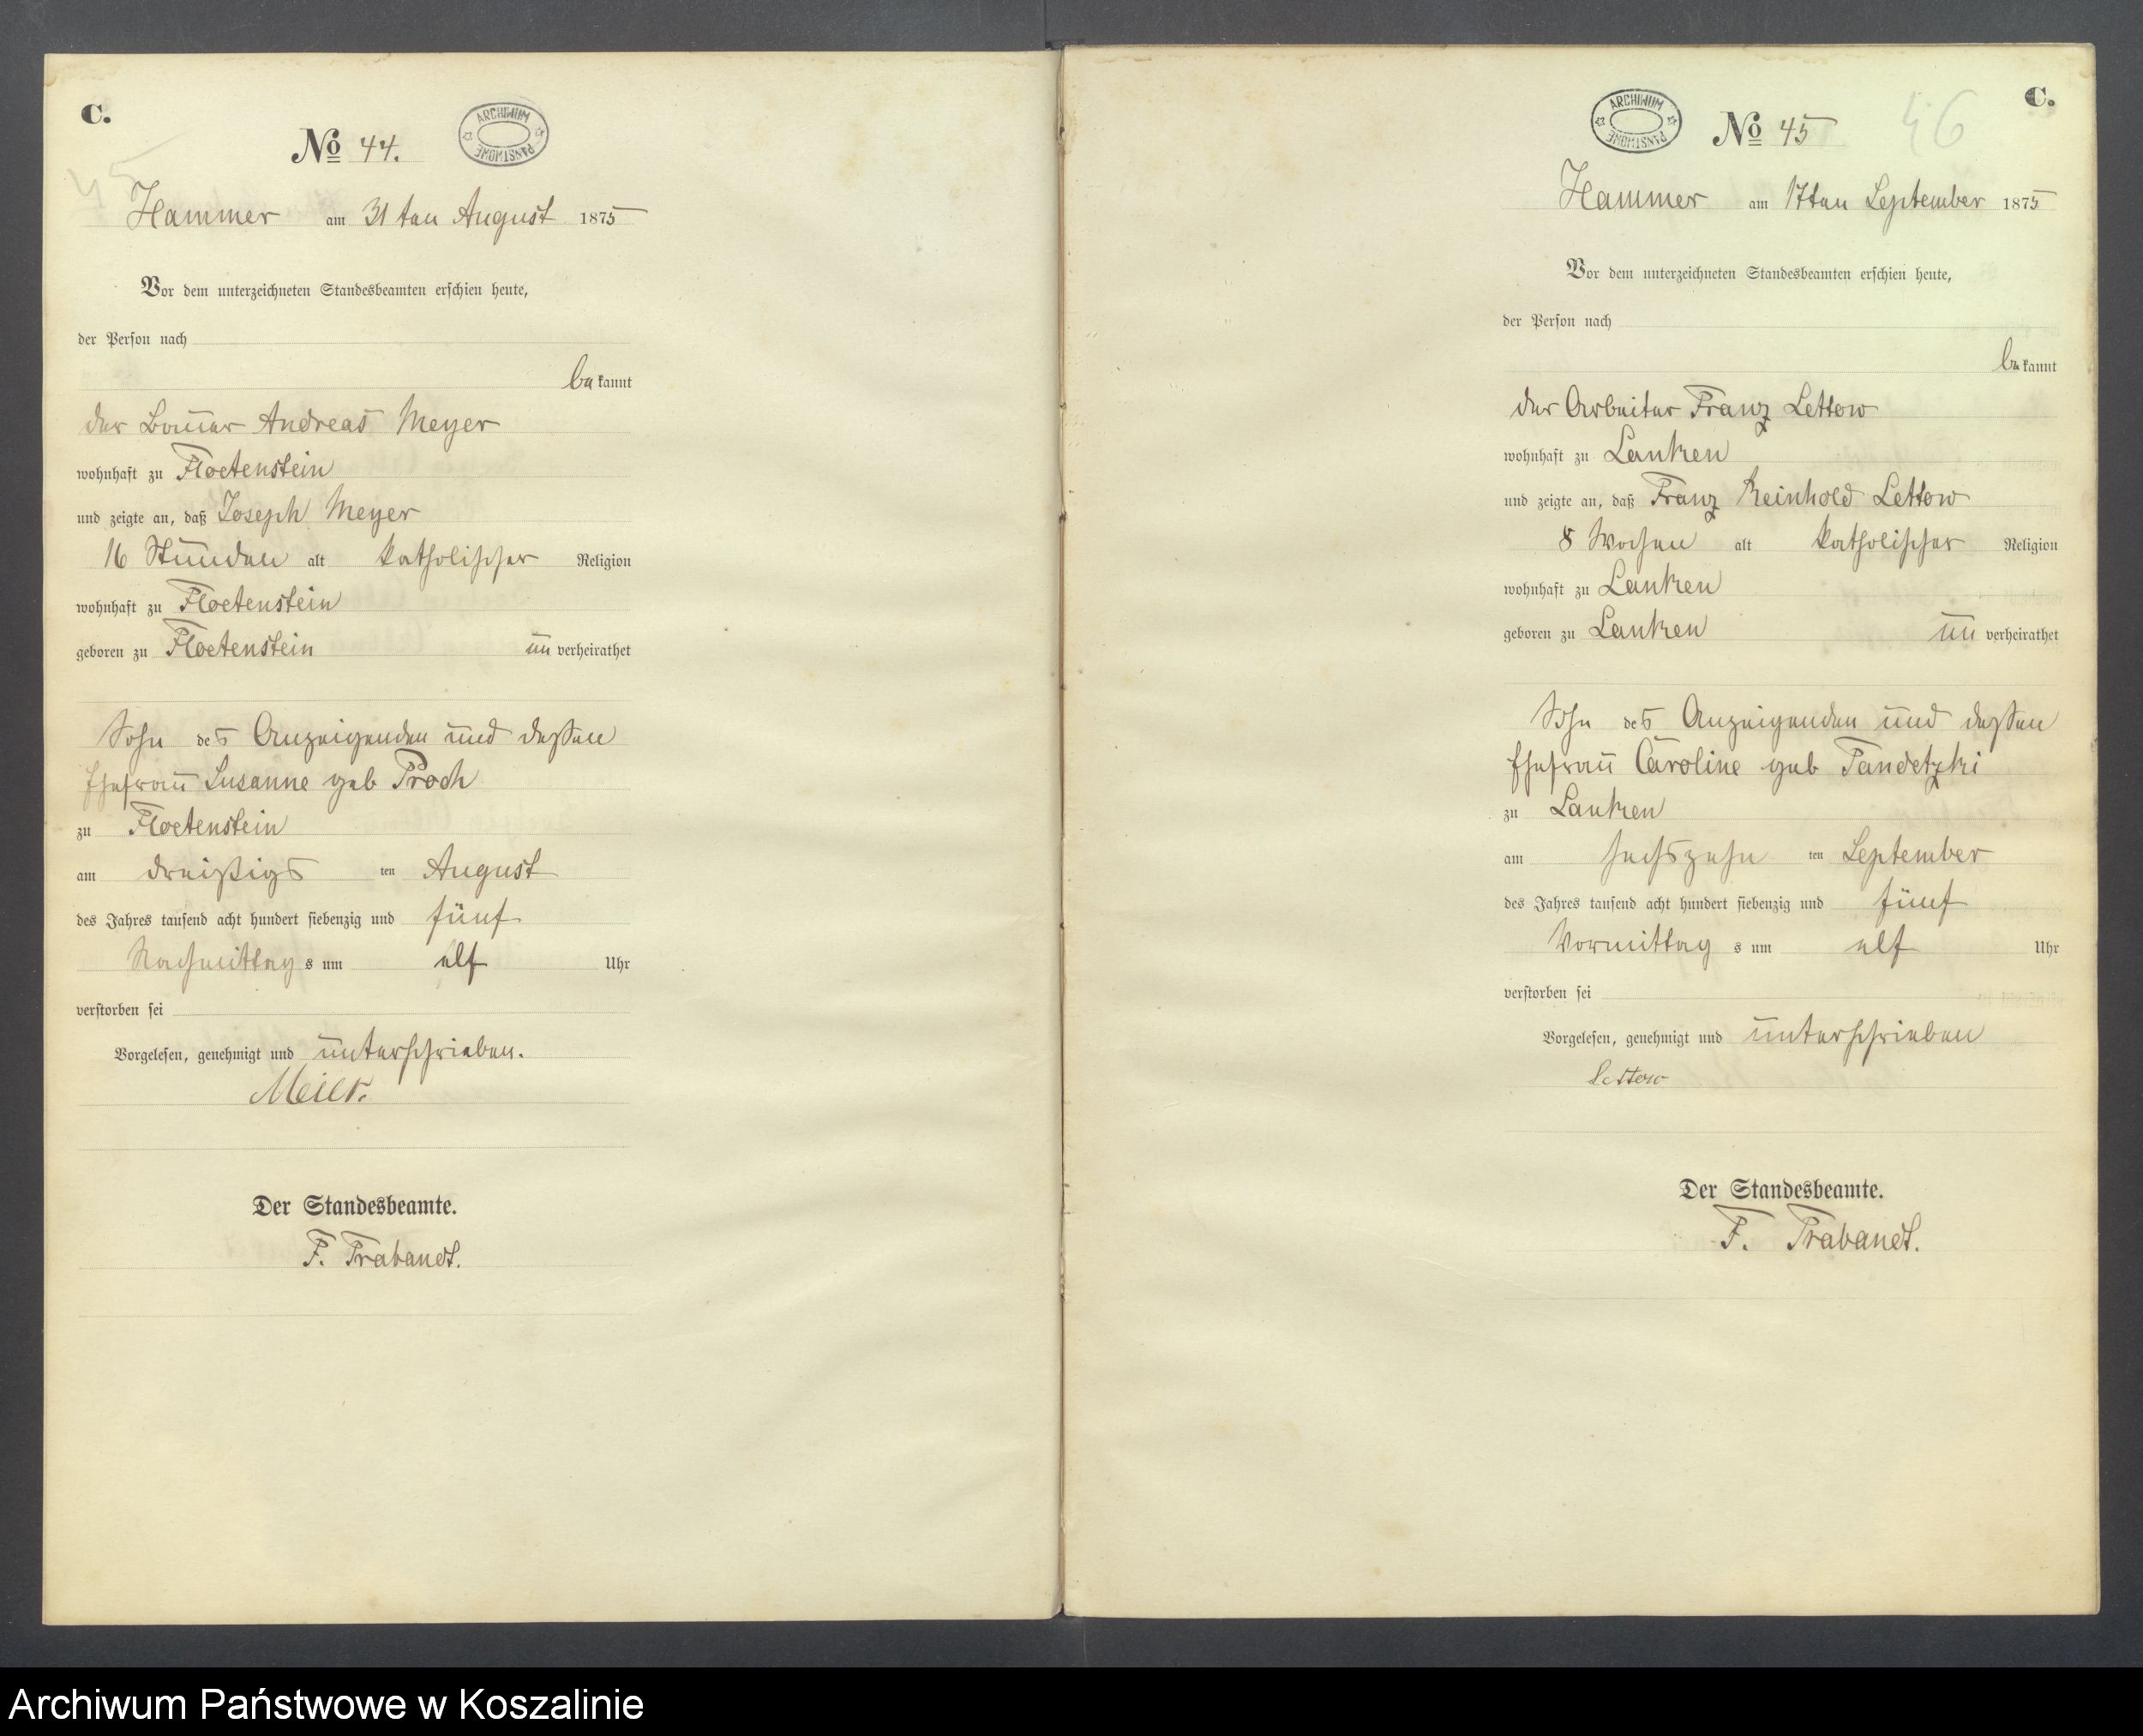 C.
No 44.
ARCHIWUM PAŃSTWOWE
45
Hammer am 31ten August 1875
Vor dem unterzeichneten Standesbeamten erschien heute,
der Person nach
bekannt
der Bauer Andreas Meyer
wohnhaft zu Floetenstein
und zeigte an, daß Joseph Meyer
16 Stunden alt katholischer Religion
wohnhaft zu Floetenstein
geboren zu Floetenstein unverheirathet
Sohn des Anzeigenden und dessen
Ehefrau Susanne geb Proch
zu Floetenstein
am dreißigs ten August
des Jahres tausend acht hundert siebenzig und fünf
Nachmittags um elf Uhr
verstorben sei
Vorgelesen, genehmigt und unterschrieben.
Meier.
Der Standesbeamte.
F. Trabandt.
C.
ARCHIWUM PAŃSTWOWE
No 45
46
Hammer am 17ten September 1875
Vor dem unterzeichneten Standesbeamten erschien heute,
der Person nach
bekannt
der Arbeiter Franz Lettow
wohnhaft zu Lanken
und zeigte an, daß Franz Reinhold Lettow
8 Wochen alt katholischer Religion
wohnhaft zu Lanken
geboren zu Lanken unverheirathet
Sohn des Anzeigenden und dessen
Ehefrau Caroline geb Pandetzki
zu Lanken
am sechszehn ten September
des Jahres tausend acht hundert siebenzig und fünf
Vormittags um elf Uhr
verstorben sei
Vorgelesen, genehmigt und unterschrieben
Lettow
Der Standesbeamte.
F. Trabandt.
Archiwum Państwowe w Koszalinie